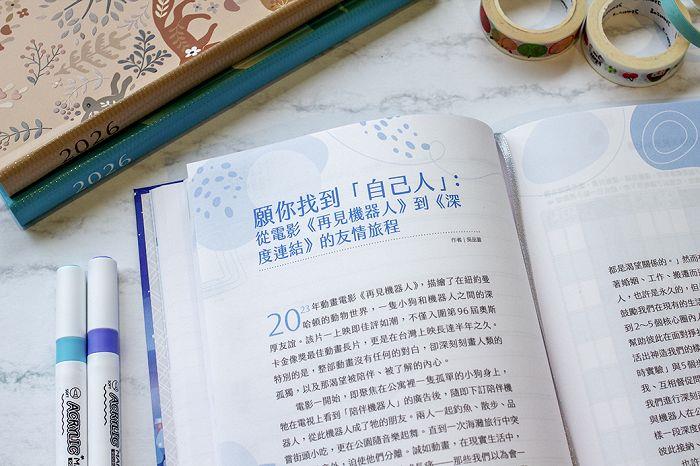 2026
2026
願你找到「自己人」：
從電影《再見機器人》到《深
度連結》的友情旅程
作者｜吳岳蓋
2023年動畫電影《再見機器人》，描繪了在紐約曼
哈頓的動物世界，一隻小狗和機器人之間的深
厚友誼。該片一上映即佳評如潮，不僅入圍第96屆奧斯
卡金像獎最佳動畫長片，更是在台灣上映長達半年之久。
特別的是，整部動畫沒有任何的對白，卻深刻刻畫人類的
孤獨，以及那渴望被陪伴、被了解的內心。
電影一開始，即聚焦在公寓裡一隻孤單的小狗身上，
牠在電視上看到「陪伴機器人」的廣告後，隨即下訂陪伴機
器人，從此機器人成了牠的朋友。兩人一起釣魚、散步、品
嘗街頭小吃，更在公園隨音樂起舞。直到一次海灘旅行中突
外，迫使他們分離。誠如動畫，在現實生活中，
那些我們以為會一
都是渴望關係的。」然而
著婚姻、工作、搬遷而
人，也許是永久的，但
鼓勵我們在現有的生活
到2～5個核心圈內人
幫助彼此在面對掙
活出神造我們的樣
時實驗」與5個
我、互相督促
我們進行深刻
與機器人在
樣一段深度
彼此接納、
ACRYLIC
ACRYLIC